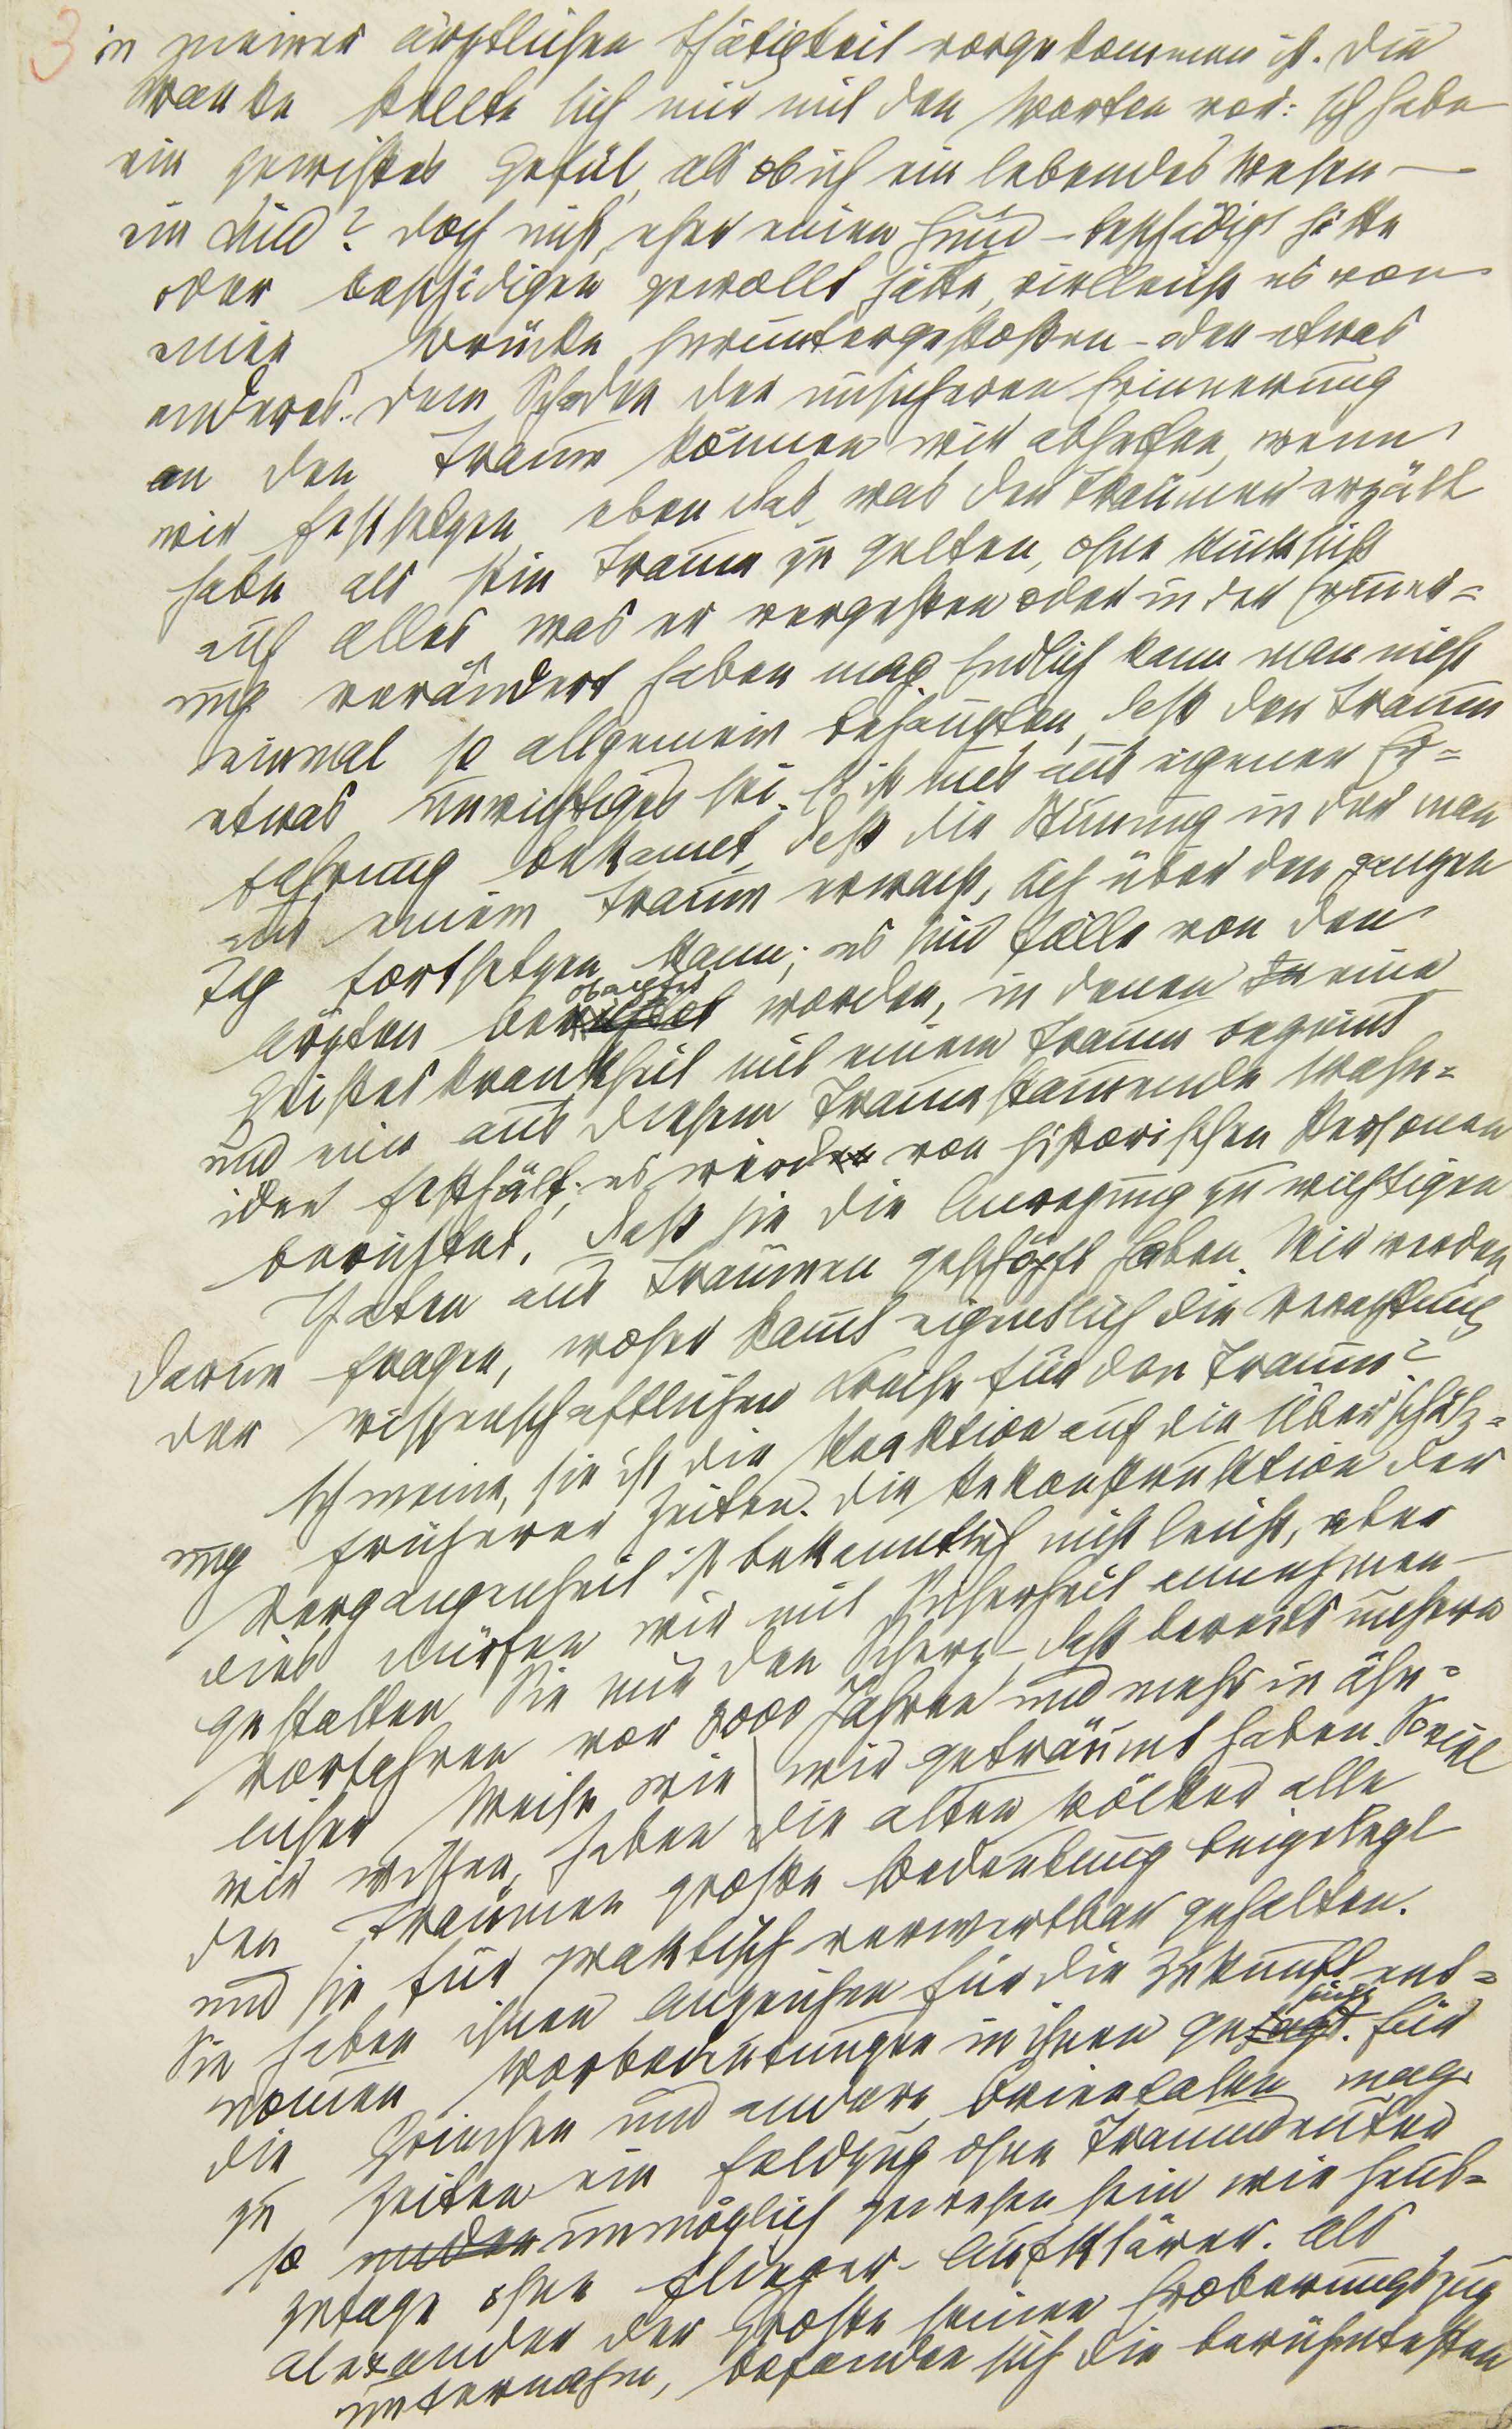 3
in meiner ärztlichen Thätigkeit vorgekommen ist. Die
Kranke stellte sich mir mit den Worten vor: Ich habe
ein gewisses Gefül, als ob ich ein lebendes Wesen –
ein Kind? doch nicht, eher einen Hund – beschädigt hätte
oder beschädigen gewollt hätte, vielleicht es von
einer Brücke heruntergestoßen – oder etwas
anderes. Dem Schaden der unsicheren Erinnerung
an den Traum können wir abhelfen, wenn
wir festsetzen, eben das, was der Träumer erzält
habe als sein Traum zu gelten, ohne Rücksicht
auf alles, was er vergessen oder in der Erinner=
ung verändert haben mag. Endlich kann man nicht
einmal so allgemein behaupten, daß der Traum
etwas Unwichtiges sei. Es ist uns aus eigener Er=
fahrung bekannt, daß die Stimung in der man
aus einem Traum erwacht, sich über den ganzen
Tag fortsetzen kann; es sind Fälle von den
obachtet
Ärzten berichtet worden, in denen eine
Geisteskrankheit mit einem Traum beginnt
und eine aus diesem Traum stammende Wahn=
idee festhält; es wird von historischen Personen
berichtet, daß sie die Anregung zu wichtigen
Thaten aus Träumen geschöpft haben. Wir werden
darum fragen, woher kommt eigentlich die Verachtung
der wissenschaftlichen Kreise für den Traum?
Ich meine, sie ist die Reaktion auf die Überschätz=
ung früherer Zeiten. Die Rekonstruktion der
Vergangenheit ist bekanntlich nicht leicht, aber
dies dürfen wir mit Sicherheit annehmen –
gestatten Sie mir den Scherz – daß bereits unsere
Vorfahren vor 3000 Jahren und mehr in ähn=
licher Weise wie wir geträumt haben. Soviel
wir wissen, haben die alten Völker alle
den Träumen große Bedeutung beigelegt
und sie für praktisch verwertbar gehalten.
Sie haben ihnen Anzeichen für die Zukunft ent=
nommen, Vorbedeutungen in ihnen gesucht. Für
die Griechen und andere Orientalen mag
zu Zeiten ein Feldzug ohne Traumdeuter
so unmöglich gewesen sein wie heut=
zutage ohne Flieger-Aufklärer. Als
Alexander der Große seinen Eroberungszug
unternahm, befanden sich die berühmtesten